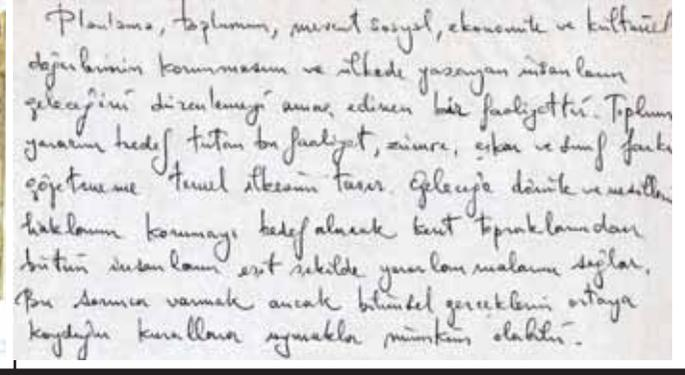 Planlama, toplumun, mevcut sosyal, ekonomik ve kültürel
değerlerinin korunmasını ve ülkede yaşayan insanların
geleceğini düzenlemeyi amaç edinen bir faaliyettir. Toplum
yararını hedef tutan bu faaliyet, zümre, çıkar ve sınıf farkı
gözetmeme temel ilkesini taşır. Geleceğe dönük ve nesillerin
haklarını korumayı hedef alarak kent topraklarından
bütün insanların eşit şekilde yararlanmalarını sağlar.
Bu sonuca varmak ancak bilimsel gerçeklerin ortaya
koyduğu kurallara uymakla mümkün olabilir.